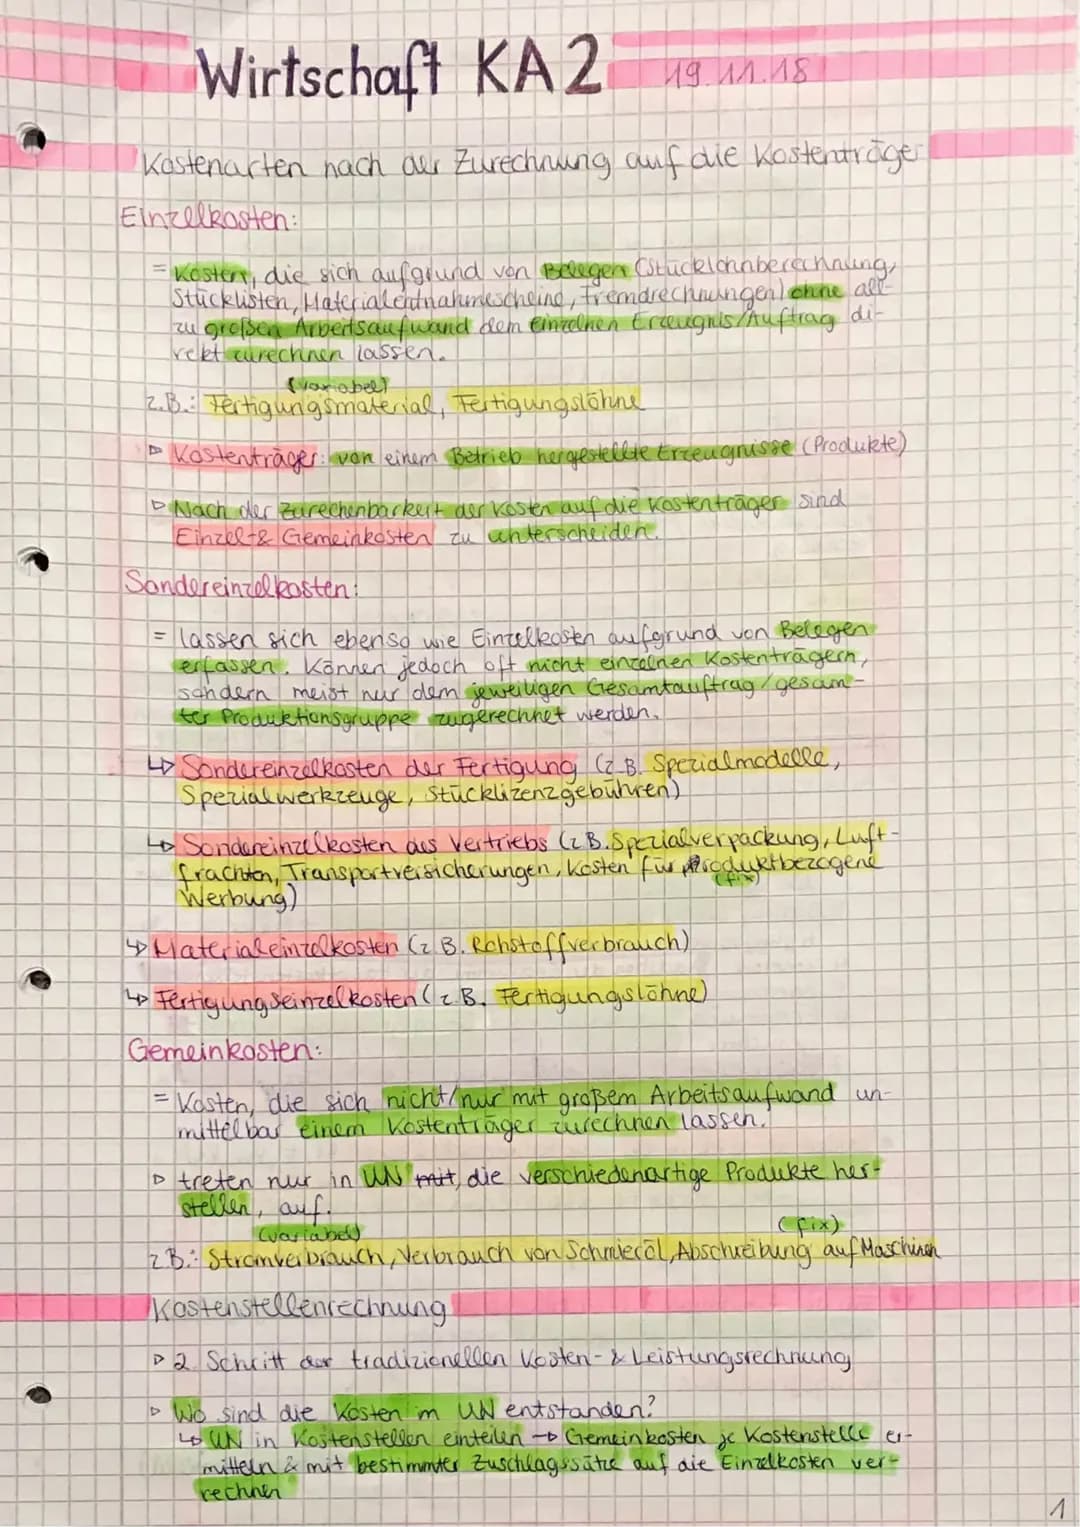 Wirtschaft KA2 19.11.18
Kostenarten nach der Zurechnung auf die Kostenträger
Einzelkosten:
= Kosten, die sich aufgrund von Belegen (Stücklohnberechnung,
Stücklisten, Materialentnahmescheine, Fremdrechnungen) ohne all-
zu großen Arbeitsaufwand dem einzelnen Erzeugnis/Auftrag di-
rekt zurechnen lassen.
(variabel)
z.B.: Fertigungsmaterial, Fertigungslöhne
▷ Kostenträger: von einem Betrieb hergestellte Erzeugnisse (Produkte)
▷ Nach der Zurechenbarkeit der Kosten auf die Kostenträger sind
Einzel- & Gemeinkosten zu unterscheiden.
Sondereinzelkosten:
= lassen sich ebenso wie Einzelkosten aufgrund von Belegen
erfassen. Können jedoch oft nicht einzelnen Kostenträgern,
sondern meist nur dem jeweiligen Gesamtauftrag/gesam-
ter Produktionsgruppe zugerechnet werden.
↳ Sondereinzelkosten der Fertigung (z.B. Spezialmodelle,
Spezialwerkzeuge, Stücklizenzgebühren)
↳ Sondereinzelkosten des Vertriebs (z.B. Spezialverpackung, Luft-
frachten, Transportversicherungen, Kosten für produktbezogene
(fix)
Werbung)
↳ Materialeinzelkosten (z.B. Rohstoffverbrauch)
↳ Fertigungseinzelkosten (z.B. Fertigungslöhne)
Gemeinkosten:
= Kosten, die sich nicht/nur mit großem Arbeitsaufwand un-
mittelbar einem Kostenträger zurechnen lassen.
▷ treten nur in UN mit, die verschiedenartige Produkte her-
stellen, auf.
(variabel) (fix)
z.B.: Stromverbrauch, Verbrauch von Schmieröl, Abschreibung auf Maschinen
Kostenstellenrechnung
▷ 2. Schritt der tradizionellen Kosten- & Leistungsrechnung
▷ Wo sind die Kosten im UN entstanden?
↳ UN in Kostenstellen einteilen → Gemeinkosten je Kostenstelle er-
mitteln & mit bestimmter Zuschlagssätze auf die Einzelkosten ver-
rechnen
1